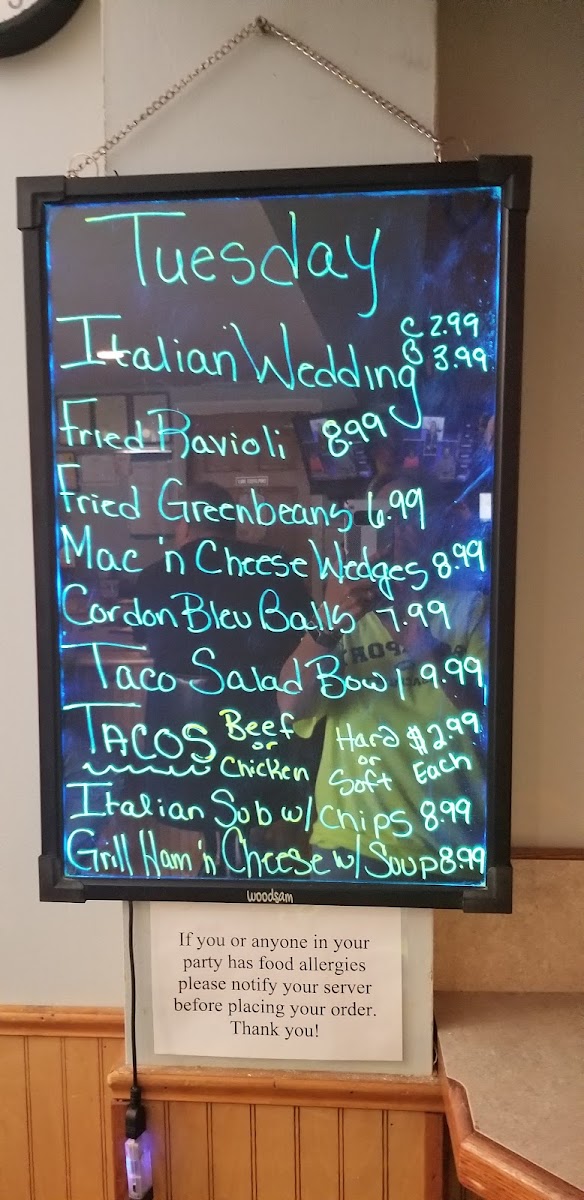 Tuesday
Italian Wedding C 2.99
B 3.99
Fried Ravioli 8.99
Fried Greenbeans 6.99
Mac 'n Cheese Wedges 8.99
Cordon Bleu Balls 7.99
Taco Salad Bowl 9.99
TACOS Beef or Chicken Hard or Soft $2.99 Each
Italian Sub w/ Chips 8.99
Grill Ham 'n Cheese w/ Soup 8.99
woodsam
If you or anyone in your
party has food allergies
please notify your server
before placing your order.
Thank you!